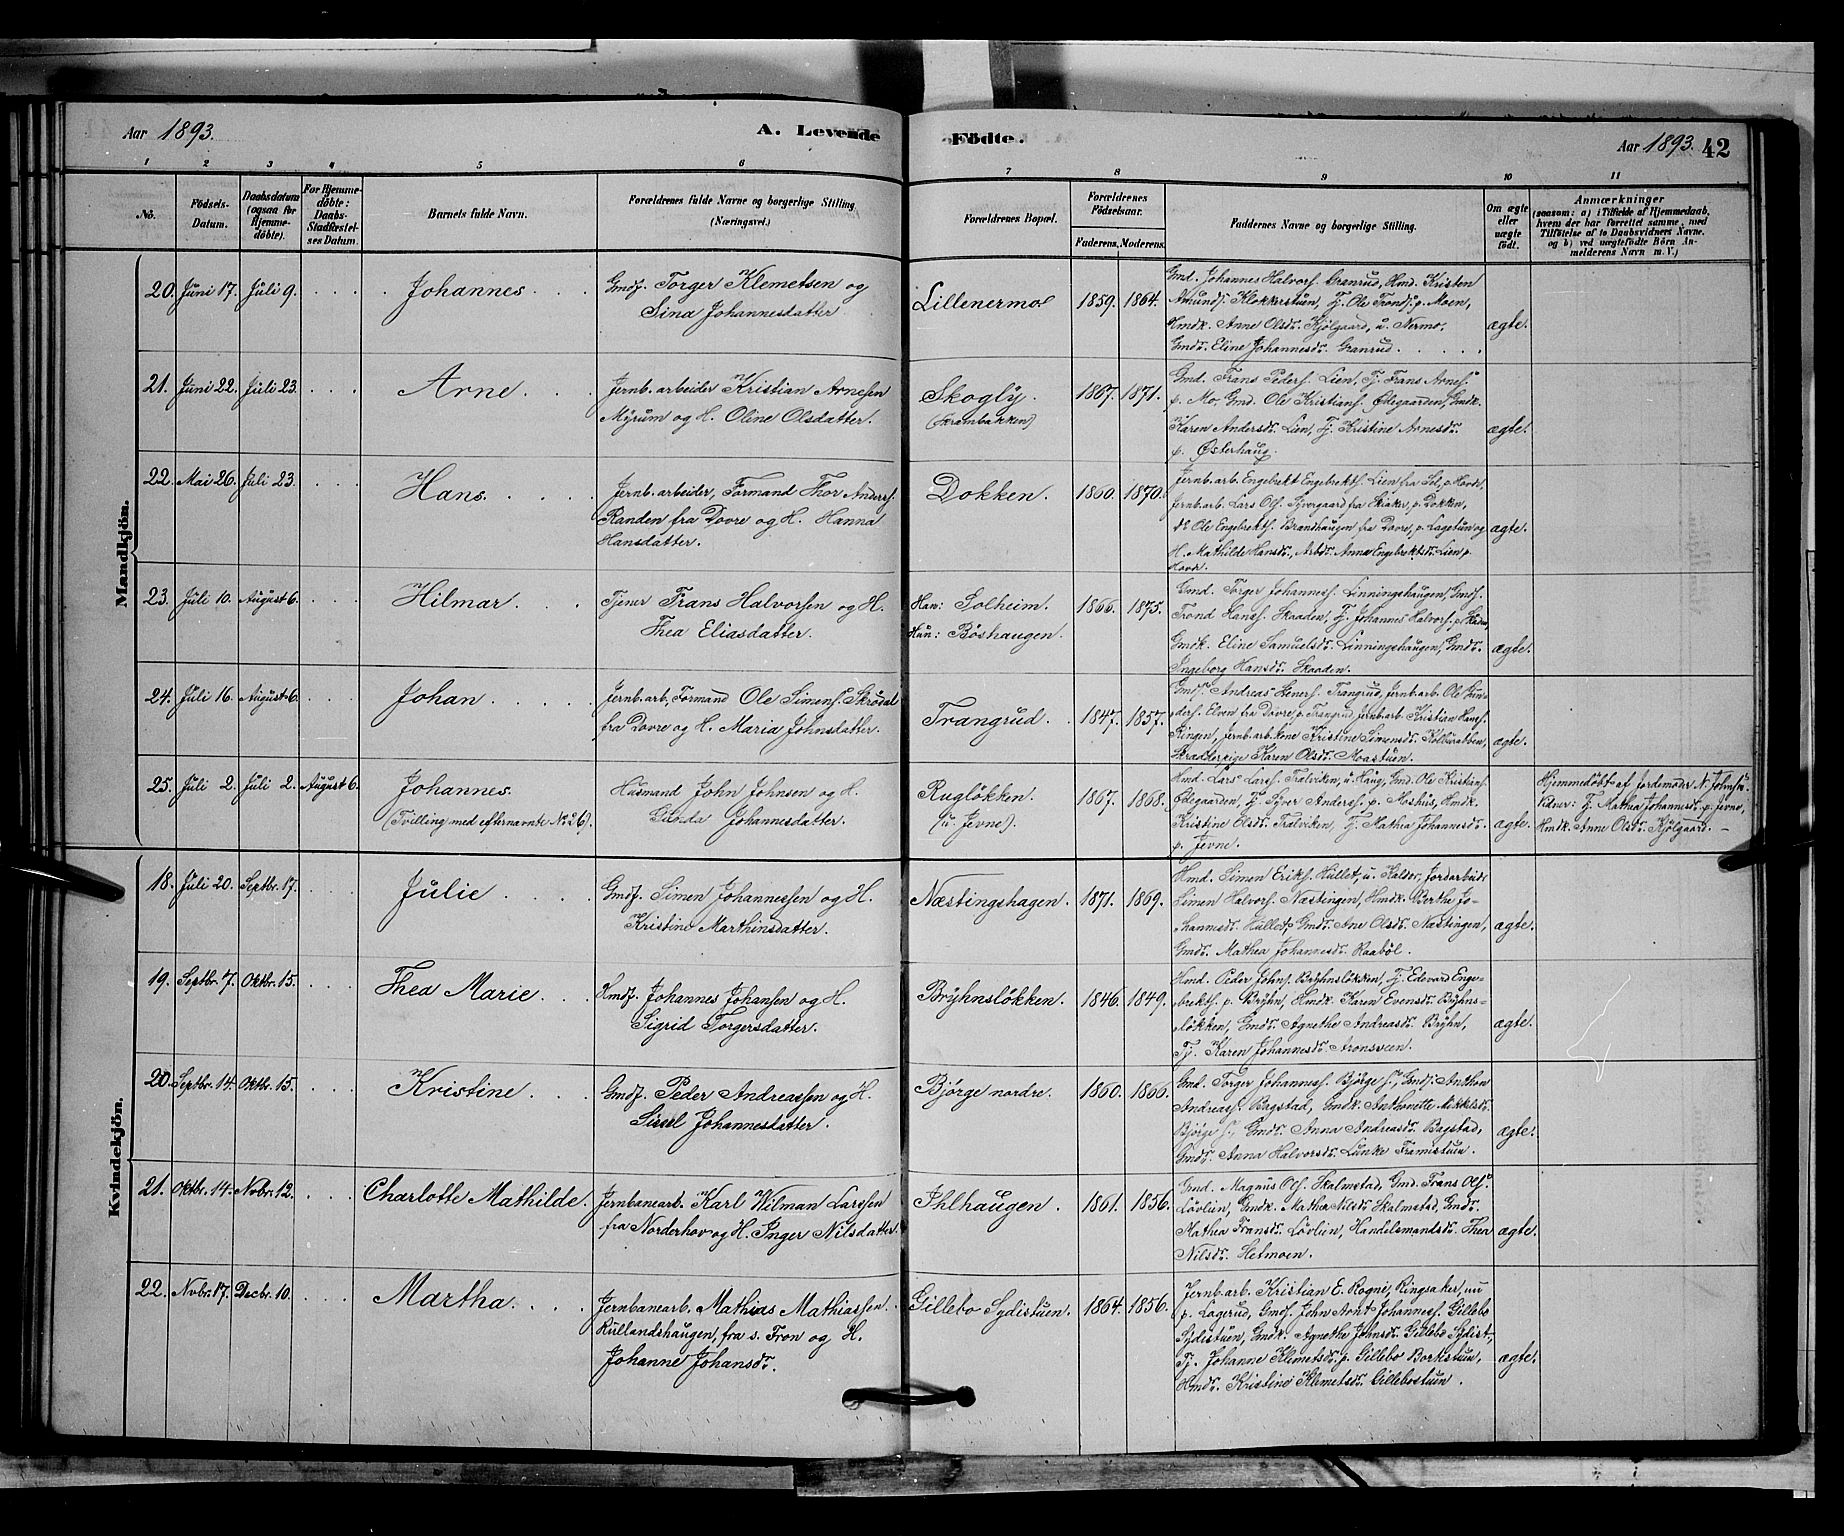 Aar 1893.
A. Levende
Födte.
Aar 1893. 42
1 2 3 4 5 6 7 8 9 10 11
No.
Födsels-Datum.
Daabsdatum (ogsaa for Hjemmedöbte).
For Hjemmedöbte: Daabs-Stadfæstelses Datum.
Barnets fulde Navn.
Forældrenes fulde Navne og borgerlige Stilling
(Næringsvei.)
Forældrenes Bopæl.
Forældrenes Födselsaar.
Faderens. Moderens.
Faddernes Navne og borgerlige Stilling.
Om ægte eller uægte födt.
Anmærkninger
(saasom: a) i Tilfælde af Hjemmedaab,
hvem der har forrettet samme, med
Tilföielse af to Daabsvidners Navne.
og b) ved uægtefödte Börn An-
melderens Navn m. V.)
Mandkjön.
20. Juni 17. Juli 9. Johannes
Gmdf. Torger Klemetsen og
Sina Johannesdatter
Lillenermo 1859. 1864.
Gmd. Johannes Halvors. Granrud, Hmd. Kristen
Amunds. Klokkerstuen, Tj. Ole Tronds. p. Moen,
Hmdk. Anne Olsdr. Kjölgaard, u. Nermo,
Gmdr. Eline Johannesdr. Granrud.
ægte.
21. Juni 22. Juli 23. Arne
Jernb. arbeider Kristian Arnesen
Myrum og H. Oline Olsdatter.
Skogly.
(Skrambakken)
1867. 1871.
Gmd. Frans Peders. Lien, Tj. Frans Arnes.
p. Mo, Gmd. Ole Kristians. Ødegaarden, Gmdk.
Karen Andersdr. Lien, Tj. Kristine Arnesdr.
p. Østerhaug.
ægte.
22. Mai 26. Juli 23. Hans
Jernb. arbeider, Formand Thor Anders.
Randen fra Dovre og H. Hanna
Hansdatter.
Dokken. 1860. 1870.
Jernb. arb. Engebrekt Engebrekts. Lien fra Sel, p. Hovde,
Jernb. arb. Lars Ols. Syvergaard fra Skiaker, p. Dokken,
do Ole Engebrekts. Brandhaugen fra Dovre, p. Lagetun og
H. Mathilde Hansdr., Arbdr. Anna Engebrektsdr. Lien p.
Hovde.
ægte.
23. Juli 10. August 6. Hilmar.
Tjener Frans Halvorsen og H.
Thea Eliasdatter.
Han: Solheim.
Hun: Böshaugen.
1866. 1875.
Gmd. Torger Johanness. Linningshaugen, Gmds.
Trond Hans. Skaaden, Tj. Johannes Halvors. p. Skaden,
Gmdk. Eline Samuelsdr. Linningshaugen, Gmdr.
Ingeborg Hansdr. Skaaden.
ægte.
24. Juli 16. August 6. Johan
Jernb. arb, Formand Ole Simens. Skrödal
fra Dovre og H. Maria Johnsdatter.
Trangrud. 1847. 1857.
Gmds. Andreas Iverss. Trangrud, Jernb. arb. Ole Gun-
ders. Elven fra Dovre, p. Trangrud, Jernb. arb. Kristian Hans.
Ringen, Jernb. arb. kone Kristine Simensdr. Kolbratben,
Skrædderpige Karen Olsdr. Moastuen.
ægte.
25. Juli 2. Juli 2. August 6. Johannes.
(Tvilling med efternævnte No. 26).
Husmand John Johnsen og H.
Gunda Johannesdatter.
Ruglökken.
(u. Jevne).
1867. 1868.
Hmd. Lars Lars. Tralviken, u. Haug, Gmd. Ole Kristians.
Ødegaarden, Tj. Syver Anders. p. Moshus, Hmdk.
Kristine Olsdr. Tralviken, Tj. Mathea Johannesdr.
p. Jevne.
ægte.
Hjemmedöbt af Jordemoder N. Johnsen.
Vidner: Tj. Mathea Johannesd. p. Jevne,
Hmdk. Anne Olsdr. Kjölgaard.
Kvindekjön.
18. Juli 20. Septbr. 17. Julie
Gmdf. Simen Johannessen og H.
Kristine Marthinsdatter.
Næstingshagen. 1871. 1869.
Hmd. Simen Eriks. Hullet, u. Kalder, Jordarbeid.
Simen Halvors. Næstingen, Hmdk. Berthe Jo-
hannesdr. Hullet, Gmdr. Ane Olsdr. Næstingen,
Gmdr. Mathea Johannesdr. Raaböl.
ægte.
19. Septbr. 7. Oktbr. 15. Thea Marie.
Hmdf. Johannes Johansen og H.
Sigrid Torgersdatter.
Bryhnslökken. 1846. 1849.
Hmd. Peder Johns. Bryhnslökken, Tj. Edevard Enge-
brekts. p. Bryhn, Hmdk. Karen Evensdr. Bryhns-
lökken, Gmdr. Agnethe Andreasdr. Bryhn,
Tj. Karen Johannesdr. Aronsveen.
ægte.
20. Septbr. 14. Oktbr. 15. Kristine
Gmdf. Peder Andreassen og H.
Sissel Johannesdatter.
Bjørge nordre. 1860. 1866.
Gmd. Torger Johanness. Bjørge s., Gmds. Anthon
Andreass. Bagstad, Gmdk. Anthonette Mikkelsdr.
Bjørge s., Gmdr. Anna Andreasdr. Bagstad,
Gmdr. Anna Halvorsdr. Lunke Framistuen.
ægte.
21. Oktbr. 14. Novbr. 12. Charlotte Mathilde.
Jernbanearb. Karl Wilman Larssen
fra Norderhov og H. Inger Nilsdatter.
Ihlhaugen. 1861. 1856.
Gmd. Magnus Ols. Skalmstad, Gmd. Frans Ols.
Lövlien, Gmdk. Mathea Nilsdr. Skalmstad, Gmdr.
Mathea Fransdr. Lövlien, Handelsmandsdr. Thea
Nilsdr. Hetmoen.
ægte.
22. Novbr. 17. Decbr. 10. Martha.
Jernbanearb. Mathias Mathiassen
Rullandshaugen, fra s. Fron og H.
Johanne Johansdr.
Gillebo Sydistuen. 1864. 1856.
Jernb. arb. Kristian E. Rogne, Ringsaker, nu
p. Lagerud, Gmds. John Arnt Johanness. Gillebo
Sydistuen, Gmdk. Agnethe Johnsdr. Gillebo Sydist.,
Tj. Johanne Klemetsdr. p. Gillebo Borkstuen,
Hmdr. Kristine Klemetsdr. Gillebostuen.
ægte.